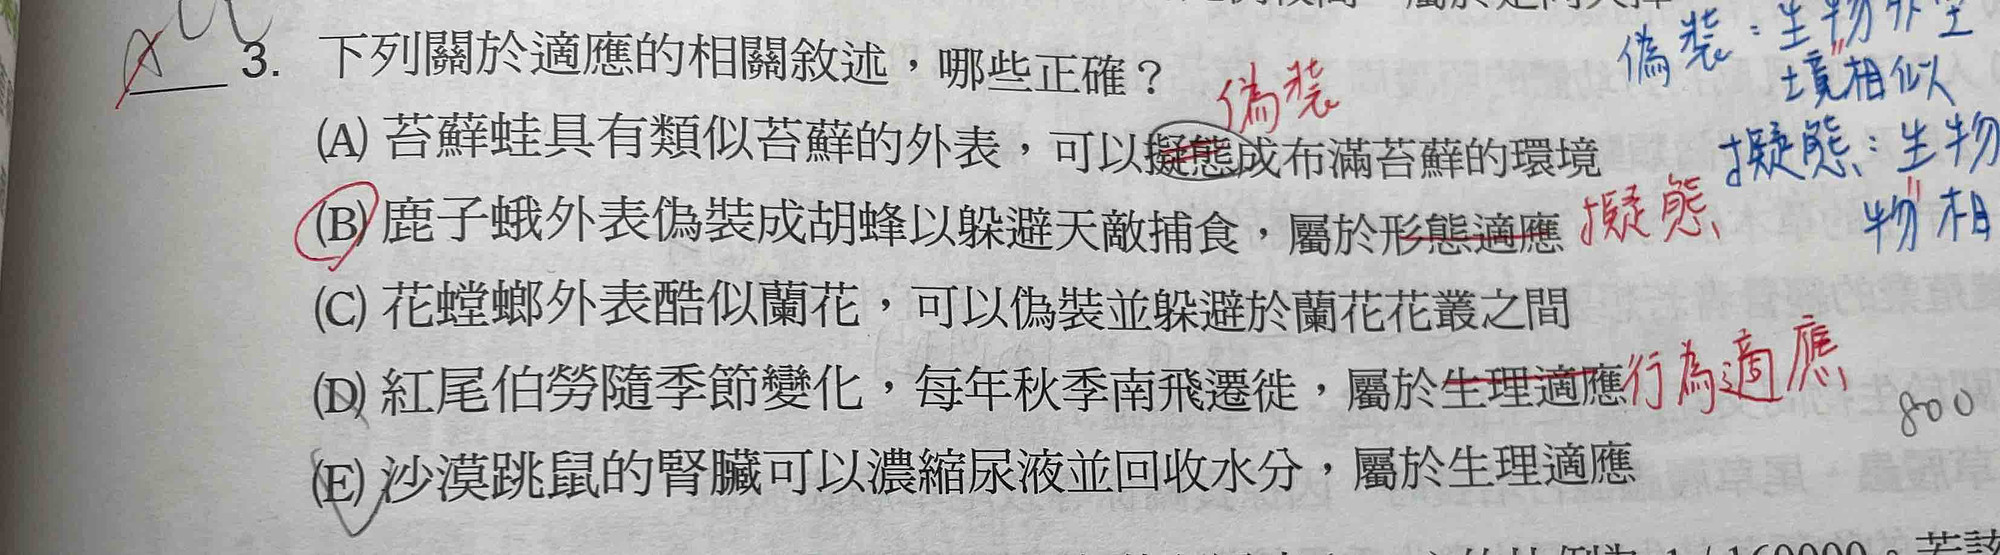 偽裝：生物外型
境相似
3. 下列關於適應的相關敘述，哪些正確？
偽裝
(A) 苔蘚蛙具有類似苔蘚的外表，可以擬態成布滿苔蘚的環境
擬態：生物
(B) 鹿子蛾外表偽裝成胡蜂以躲避天敵捕食，屬於形態適應 擬態
物相
(C) 花螳螂外表酷似蘭花，可以偽裝並躲避於蘭花花叢之間
(D) 紅尾伯勞隨季節變化，每年秋季南飛遷徙，屬於生理適應 行為適應
800
(E) 沙漠跳鼠的腎臟可以濃縮尿液並回收水分，屬於生理適應